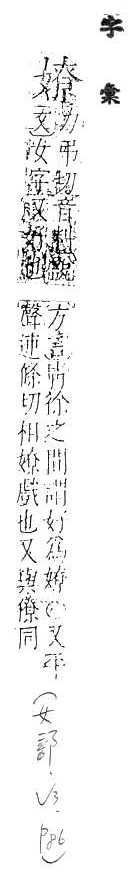 字彙
力弔切音
方言青徐之間謂好爲嫽又平
聲連條切相嫽戲也又與僚同
(女部·V3·P86)